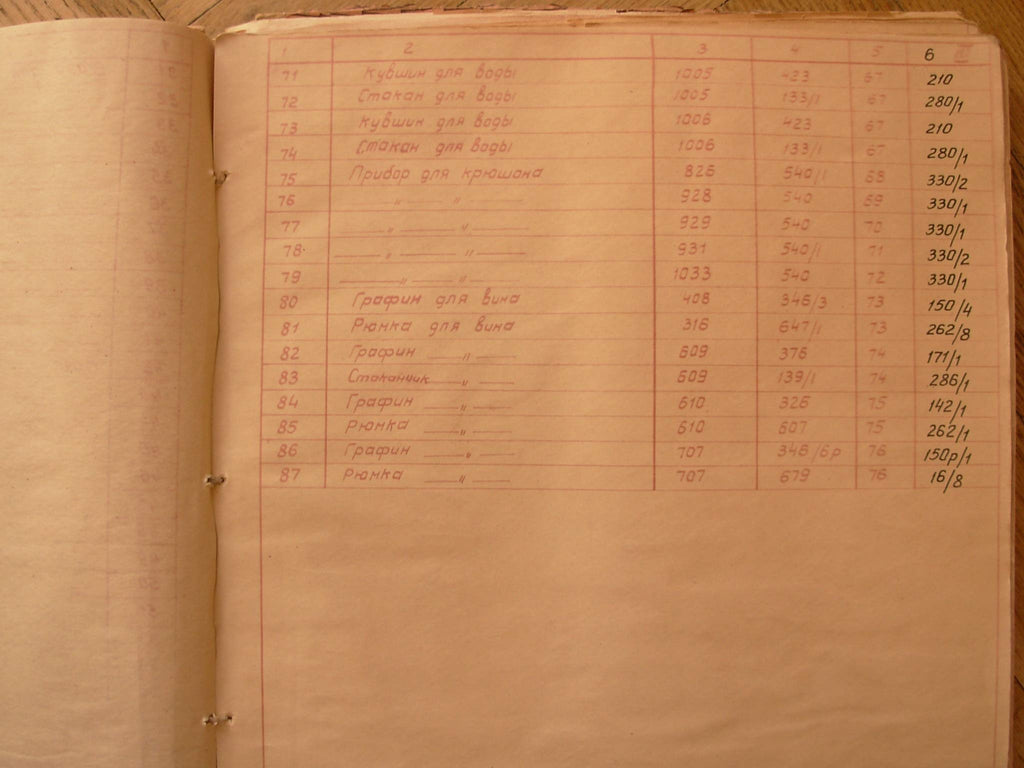 1 2 3 4 5 6
71 Кувшин для воды 1005 423 67 210
72 Стакан для воды 1005 133/1 67 280/1
73 Кувшин для воды 1006 423 67 210
74 Стакан для воды 1006 133/1 67 280/1
75 Прибор для крюшона 826 540/1 68 330/2
76 —— " —— " —— 928 540 69 330/1
77 —— " —— " —— 929 540 70 330/1
78 —— " —— " —— 931 540/1 71 330/2
79 —— " —— " —— 1033 540 72 330/1
80 Графин для вина 408 346/3 73 150/4
81 Рюмка для вина 316 647/1 73 262/8
82 Графин —— " —— 609 376 74 171/1
83 Стаканчик —— " —— 609 139/1 74 286/1
84 Графин —— " —— 610 326 75 142/1
85 Рюмка —— " —— 610 607 75 262/1
86 Графин —— " —— 707 346/6р 76 150р/1
87 Рюмка —— " —— 707 679 76 16/8